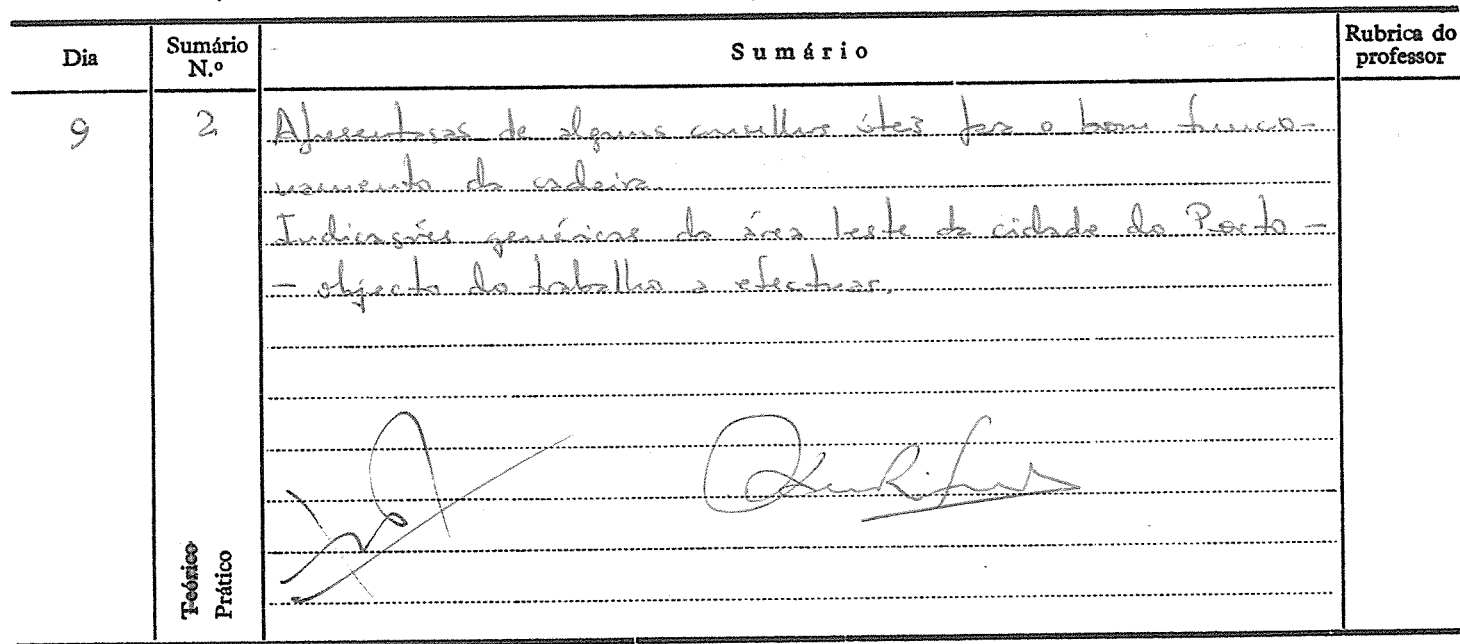 Dia Sumário N.º Sumário Rubrica do professor
9 2 Apresentação de alguns conselhos úteis para o bom funcio-
namento da cadeira.
Indicações genéricas da área leste da cidade do Porto -
- objecto do trabalho a efectuar.
Teórico
Prático